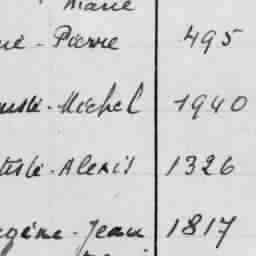 Marie
né - Pierre 495
uste - Michel 1940
tiste - Alexis 1326
gène - Jean 1817